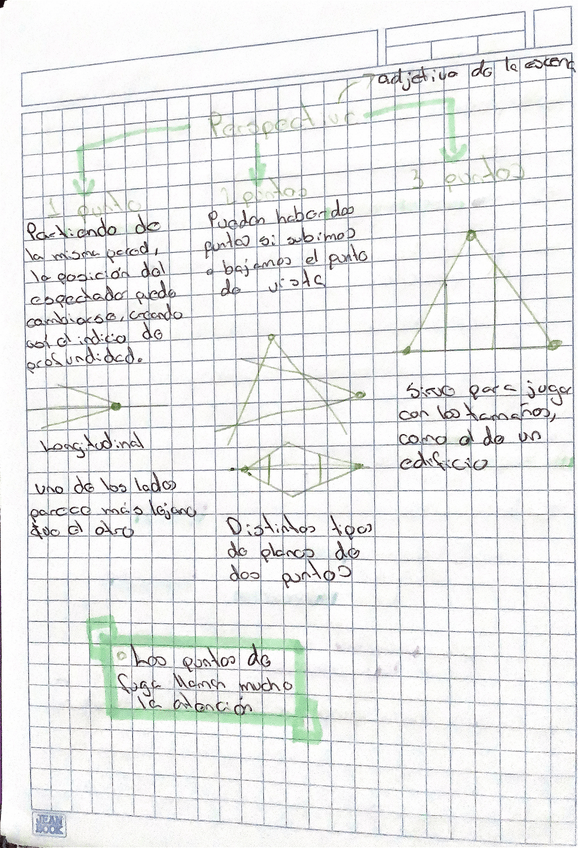 adjetivo de la escena
Perspectiva
1 punto
Partiendo de
la misma pared,
la posición del
espectado puede
cambiarse, creando
así el indicio de
profundidad.
Longitudinal
uno de los lados
parece más lejano
que el otro
2 puntos
Pueden haber dos
puntos si subimos
o bajamos el punto
de vista
Distintos tipos
de planos de
dos puntos
3 puntos
Sirve para jugar
con los tamaños,
como el de un
edificio
Los puntos de
fuga llaman mucho
la atención
JEAN
BOOK